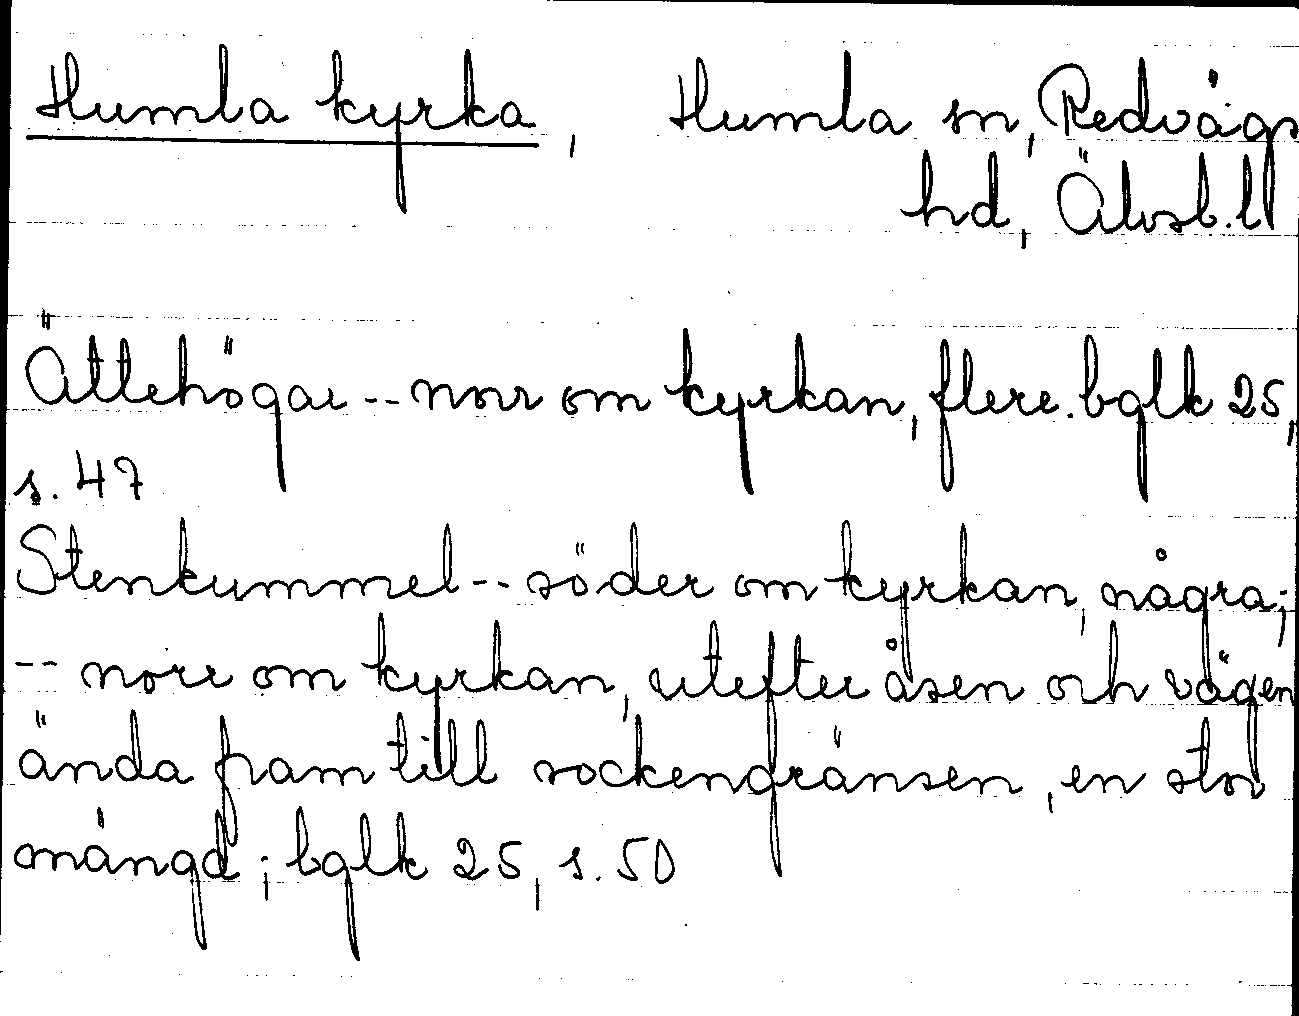 Humla kyrka, Humla sn, Redvägs
hd, Älvsb.l
Ättehögar -- norr om kyrkan, flere. bglk 25,
s. 47
Stenkummel -- söder om kyrkan, några;
-- norr om kyrkan, utefter åsen och vägen
ända fram till sockengränsen, en stor
mängd; bglk 25, s. 50